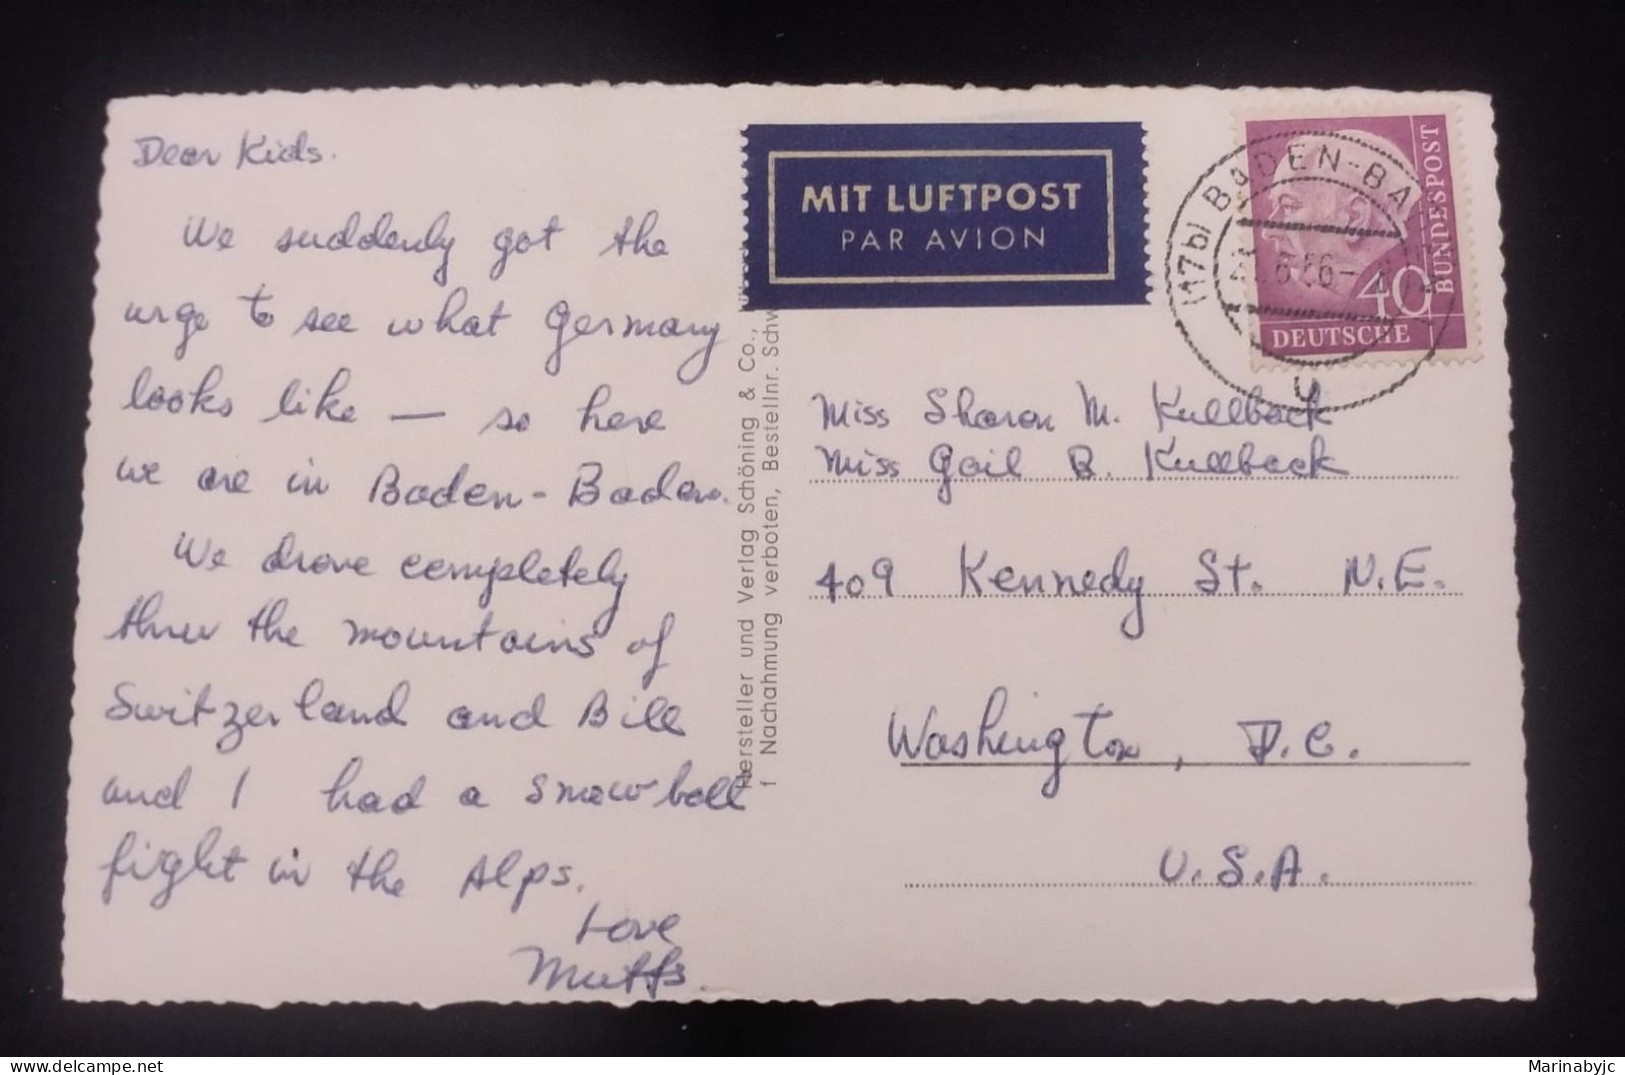 Dear Kids.
We suddenly got the
urge to see what Germany
looks like — so here
we are in Baden-Baden.
We drove completely
thru the mountains of
Switzerland and Bill
and I had a snowball
fight in the Alps.
Love
Muffs.
Hersteller und Verlag Schöning & Co.,
f Nachahmung verboten, Bestellnr. Schw
MIT LUFTPOST
PAR AVION
(17b) BADEN-BA
U
40
DEUTSCHE
BUNDESPOST
Miss Sharon M. Kullback
Miss Gail B. Kullback
409 Kennedy St. N.E.
Washington, D.C.
U.S.A.
Marinabyjc